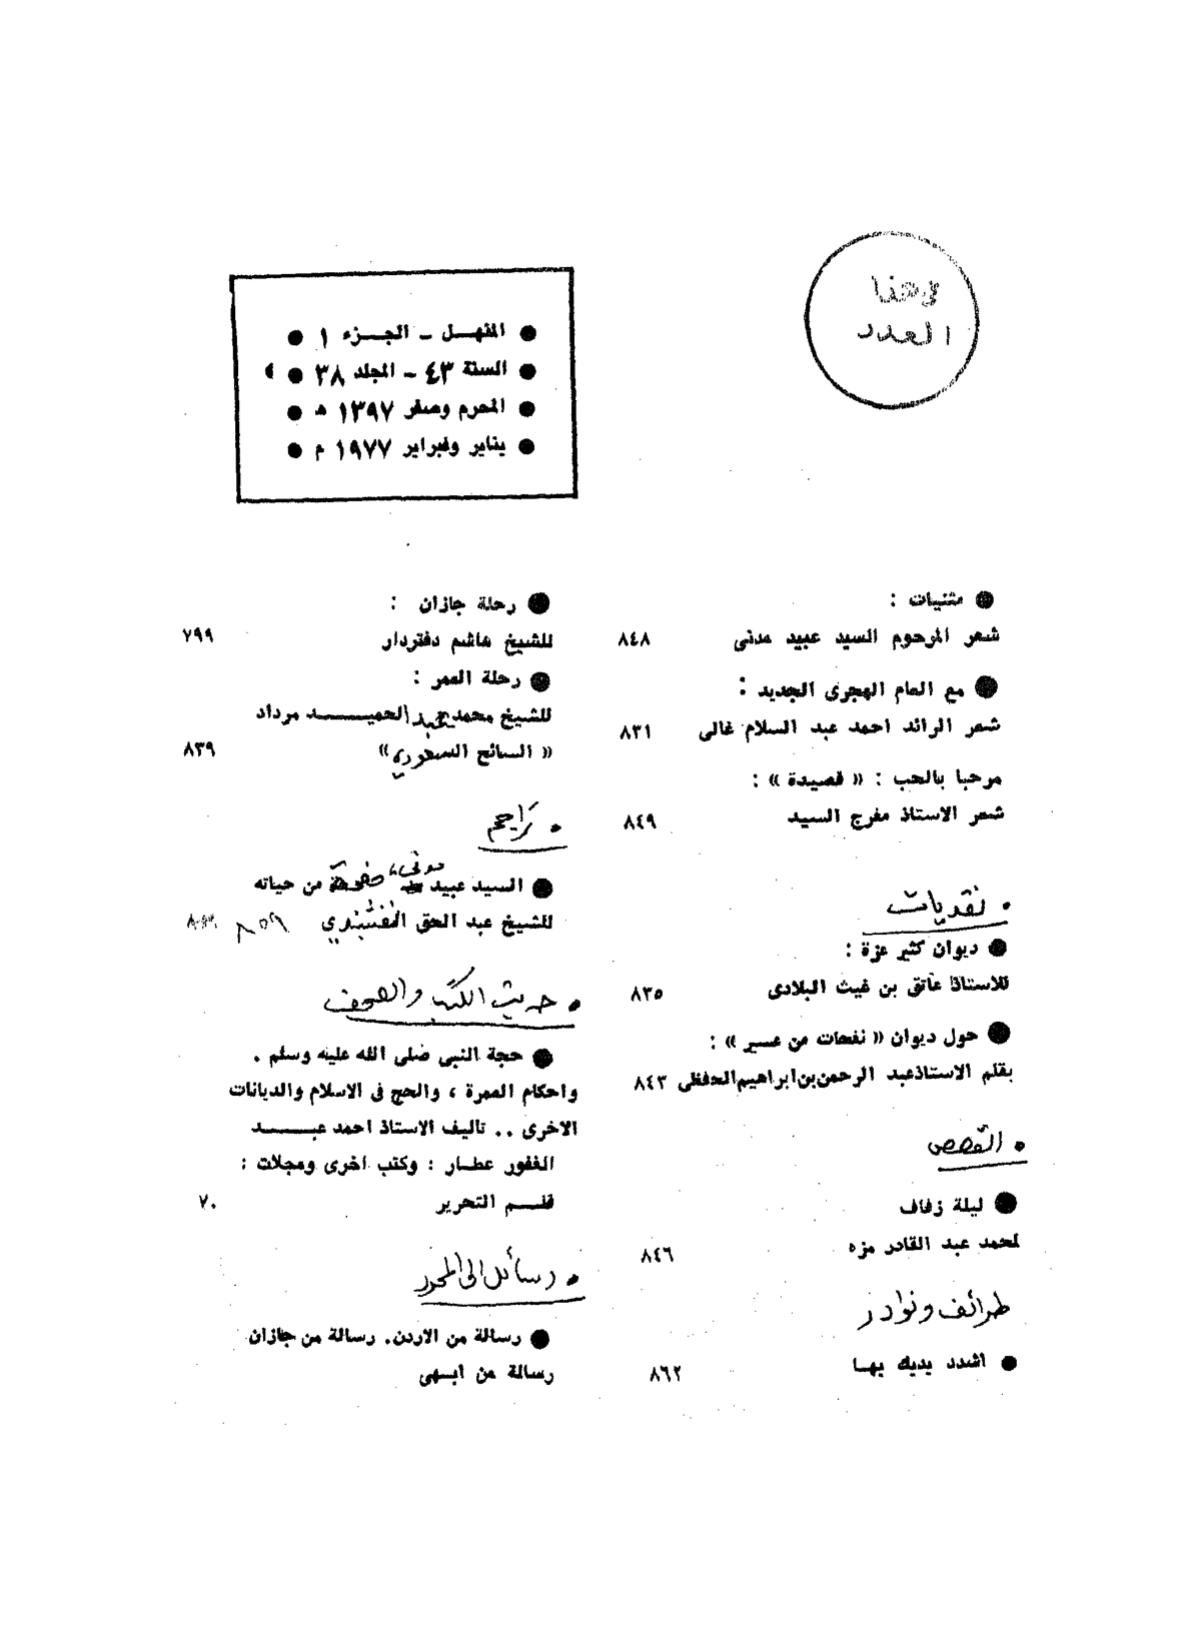 في هذا
العدد
● المنهــل - الجــزء ١ ●
● السنة ٤٣ - المجلد ٣٨ ●
● المحرم وصفر ١٣٩٧ هـ ●
● يناير وفبراير ١٩٧٧ م ●
● مثنيات :
شعر المرحوم السيد عبيد مدنى ٨٤٨
● مع العام الهجرى الجديد :
شعر الرائد احمد عبد السلام غالى ٨٣١
مرحبا بالحب : « قصيدة » :
شعر الاستاذ مفرج السيد ٨٤٩
• نقديات
● ديوان كثير عزة :
للاستاذ عاتق بن غيث البلادى ٨٣٥
● حول ديوان « نفحات من عسير » :
بقلم الاستاذ عبد الرحمن بن ابراهيم الحفظى ٨٤٣
• القصص
● ليلة زفاف
لمحمد عبد القادر مزه ٨٤٦
طرائف ونوادر
● اشدد يديك بهـا ٨٦٢
● رحلة جازان :
للشيخ هاشم دفتردار ٧٩٩
● رحلة العمر :
للشيخ محمد عبد الحميــــد مرداد
« السائح السعودي » ٨٣٩
• تراجم
● السيد عبيد مدنى، صفحة من حياته
للشيخ عبد الحق النقشبندي ٨٥٩
• حديث الكتب والصحف
● حجة النبى صلى الله عليه وسلم .
واحكام العمرة ، والحج فى الاسلام والديانات
الاخرى .. تاليف الاستاذ احمد عبــــد
الغفور عطـار : وكتب اخرى ومجلات :
قلــــم التحرير ٧٠
• رسائل الى المحرر
● رسالة من الاردن. رسالة من جازان
رسالة من ابــهى